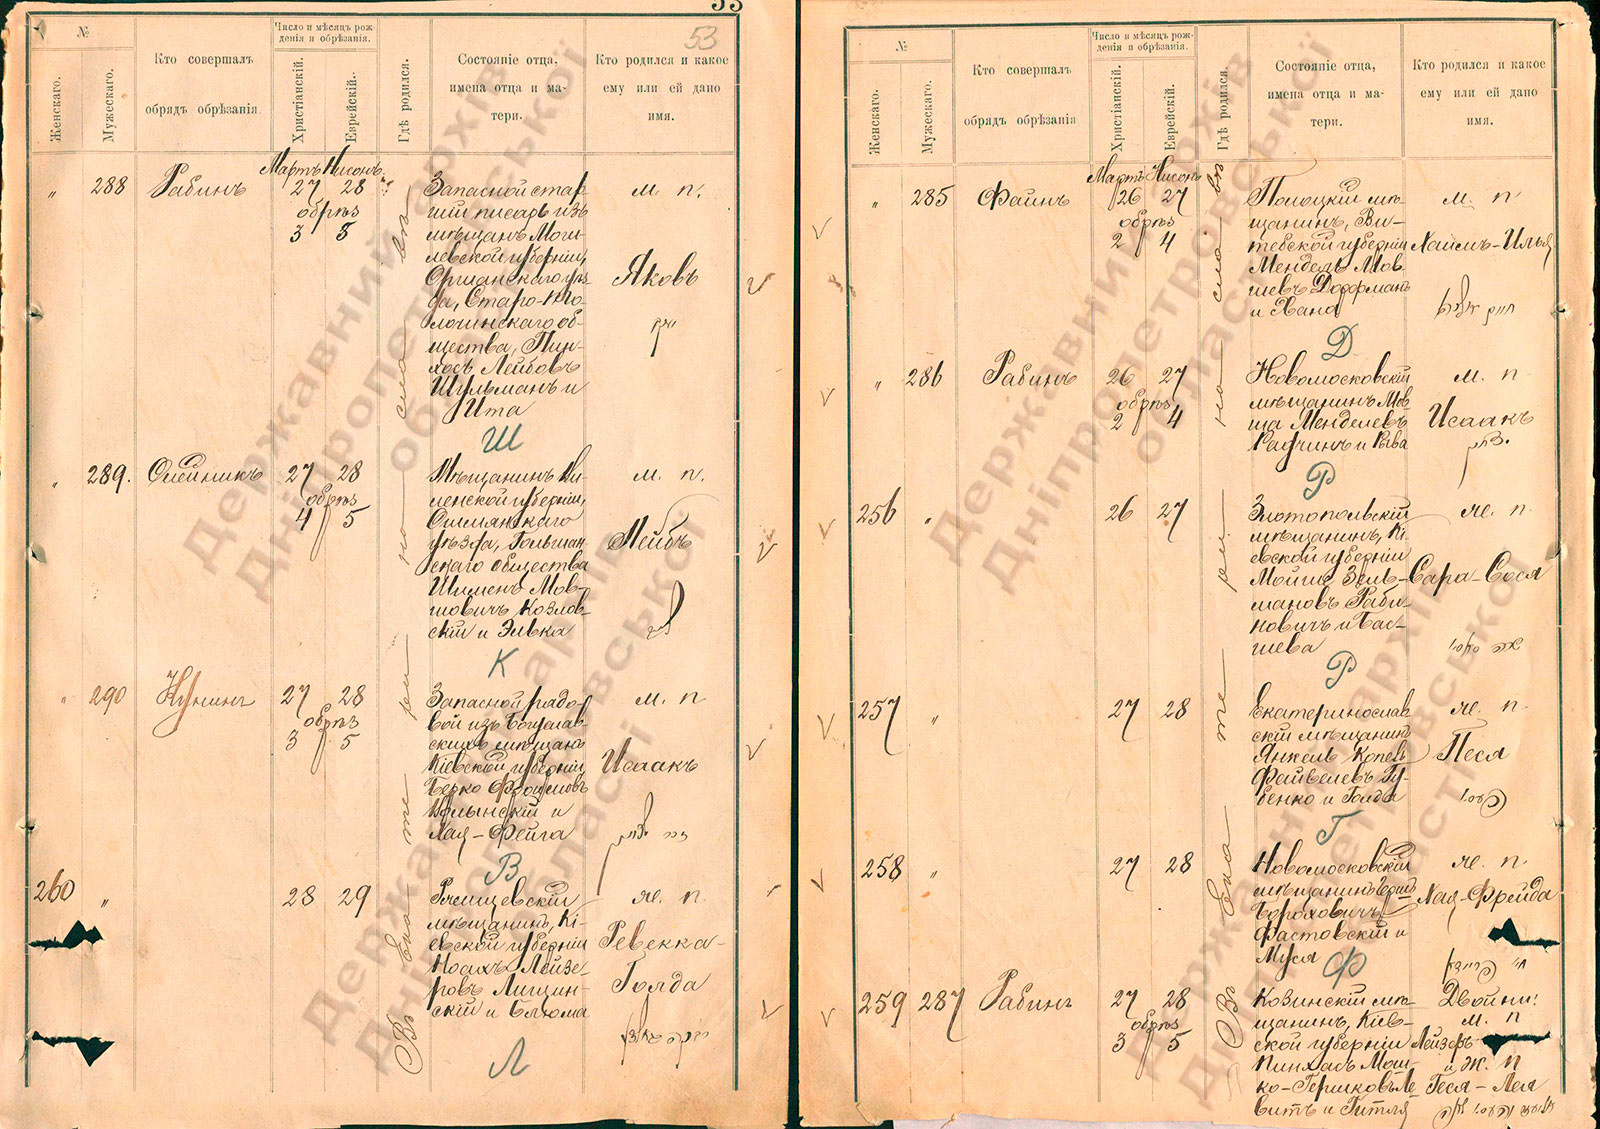 53
№
Женскаго.
Мужескаго.
Кто совершалъ
обрядъ обрѣзанія
Число и мѣсяцъ рож-
денія и обрѣзанія.
Христіанскій.
Еврейскій.
Гдѣ родился.
Состояніе отца,
имена отца и ма-
тери.
Кто родился и какое
ему или ей дано
имя.
Въ Ека-те-ри-но-сла-въ
„ 288 Рабинъ
Мартъ Нисонъ
27 28
обрѣз
3 5
Запасной стар
шій писарь изъ
мѣщанъ Моги-
левской губерніи,
Оршанскаго уѣз-
да, Старо-
общества, Пин-
хосъ Лейбовъ
Шульманъ и
Ита
м. п.
Яковъ
יעקב
Ш
„ 289. Олейникъ
27 28
обрѣз
4 5
Мѣщанинъ Ви-
ленской губерніи,
Ошмянскаго
уѣзда, Гольшан-
скаго общества
Шименъ Мов-
шовичъ Козлов-
скій и Элька
м. п.
Лейбъ
К
„ 290 Кунинъ
27 28
обрѣз
3 5
Запасной рядо-
вой изъ Богуслав
скихъ мѣщанъ
Кіевской губерніи
Берко Фроимовъ
Волынскій и
Хая-Фейга
м. п
Исаакъ
В
260 „
28 29
Ржищевскій
мѣщанинъ, Кі-
евской губерніи
Ноахъ Лейзе-
ровъ Лищин-
скій и Блюма
ж. п.
Ревекка-
Голда
Л
№
Женскаго.
Мужескаго.
Кто совершалъ
обрядъ обрѣзанія
Число и мѣсяцъ рож-
денія и обрѣзанія.
Христіанскій.
Еврейскій.
Гдѣ родился.
Состояніе отца,
имена отца и ма-
тери.
Кто родился и какое
ему или ей дано
имя.
Въ Ека-те-ри-но-сло-въ
„ 285 Файнъ
Мартъ Нисонъ
26 27
обрѣз
2 4
Полоцкій мѣ-
щанинъ, Ви-
тебской губерніи
Мендель Мов
шевъ Дорфманъ
и Хана
м. п
Хаимъ-Илья
Д
„ 286 Рабинъ
26 27
обрѣз
2 4
Новомосковскій
мѣщанинъ Мов-
ша Менделевъ
и Рива
м. п
Исаакъ
יצחק
Р
256 „
26 27
Златопольскій
мѣщанинъ, Кі-
евской губерніи
Мойше Зель-
мановъ Раби-
новичъ и Бас-
шева
ж. п.
Сара-Сося
Р
257 „
27 28
Екатеринослав
скій мѣщанинъ
Янкель Копель
Файвелевъ Гу-
бенко и Голда
ж. п.
Песя
Г
258 „
27 28
Новомосковскій
мѣщанинъ
Бороховичъ
Фастовскій и
Муся
ж. п
Хая-Фрейда
חי׳ פריידא
Ф
259 287 Рабинъ
27 28
обрѣз
3 5
Козинскій мѣ-
щанинъ, Кіев-
ской губерніи
Пинхасъ Мош-
ко-Гершковъ Ле
витъ и Гитля
Двойни:
м. п
Лейзеръ
и Ж. п
Геся-Лея
Державний архів
Дніпропетровської
області